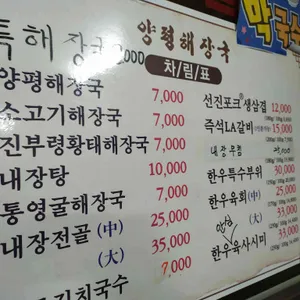 막국수
특해장국
양평해장국
차/림/표
양평해장국 7,000
소고기해장국 7,000
진부령황태해장국 7,000
내장탕 10,000
통영굴해장국 7,000
내장전골 (中) 25,000
(大) 35,000
김치국수 7,000
선진포크 생삼겹 12,000
즉석LA갈비 15,000
내장무침
한우특수부위 30,000
한우육회 (中) 25,000
(大) 33,000
한우육사시미 33,000